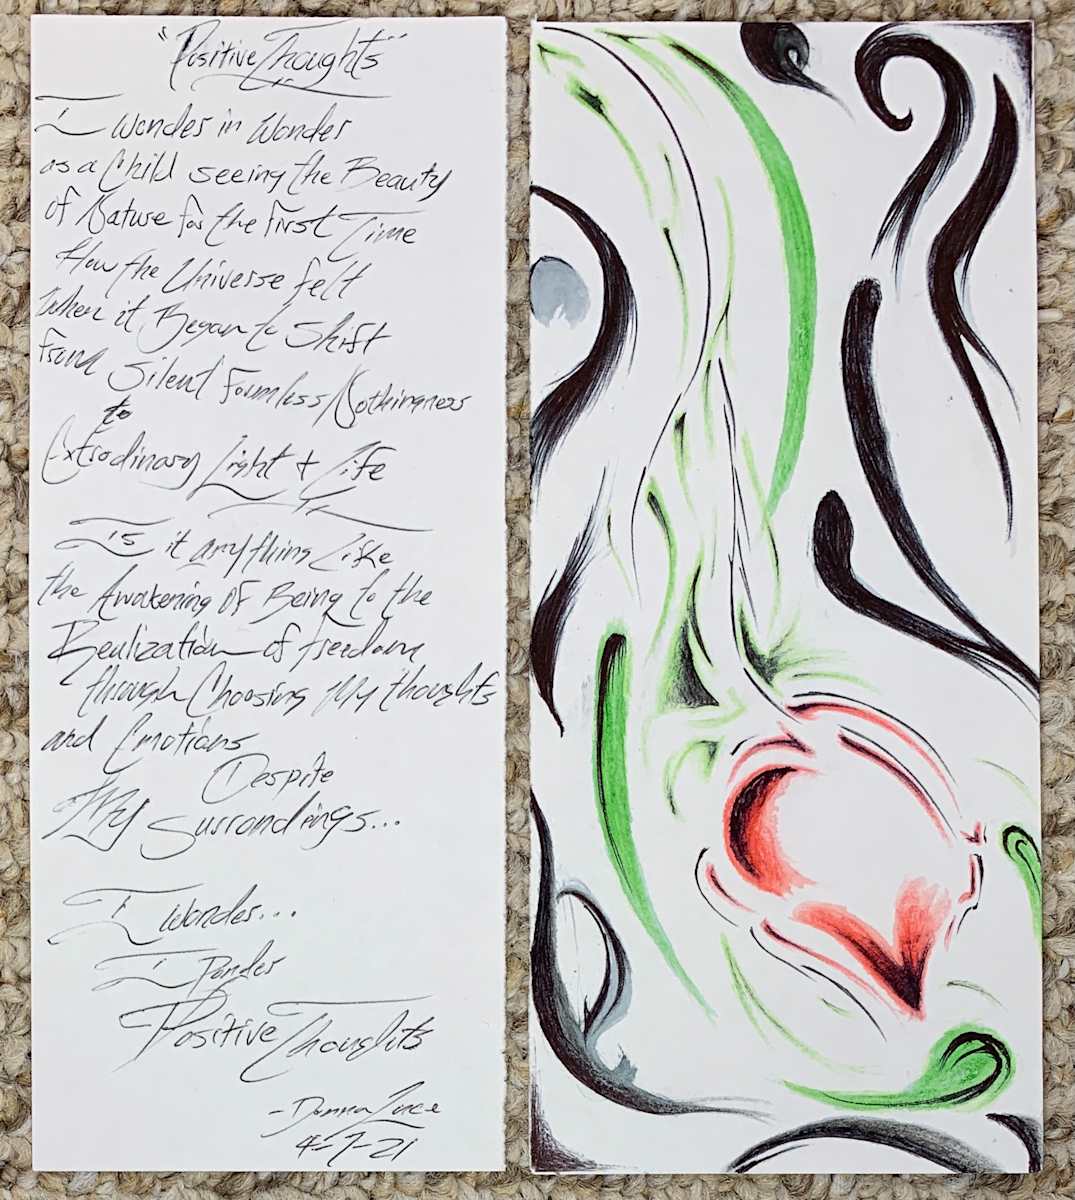 "Positive Thoughts"
I wonder in Wonder
as a Child seeing the Beauty
of Nature for the first Time
How the Universe felt
When it Began to Shift
from Silent Formless Nothingness
to
Extrodinary Light + Life
Is it anything Like
the Awakening of Being to the
Realization of freedom
through Choosing My thoughts
and Emotions
Despite
My Surrondings...
I wonder...
I Ponder
Positive Thoughts
- Donna Luce
4-7-21